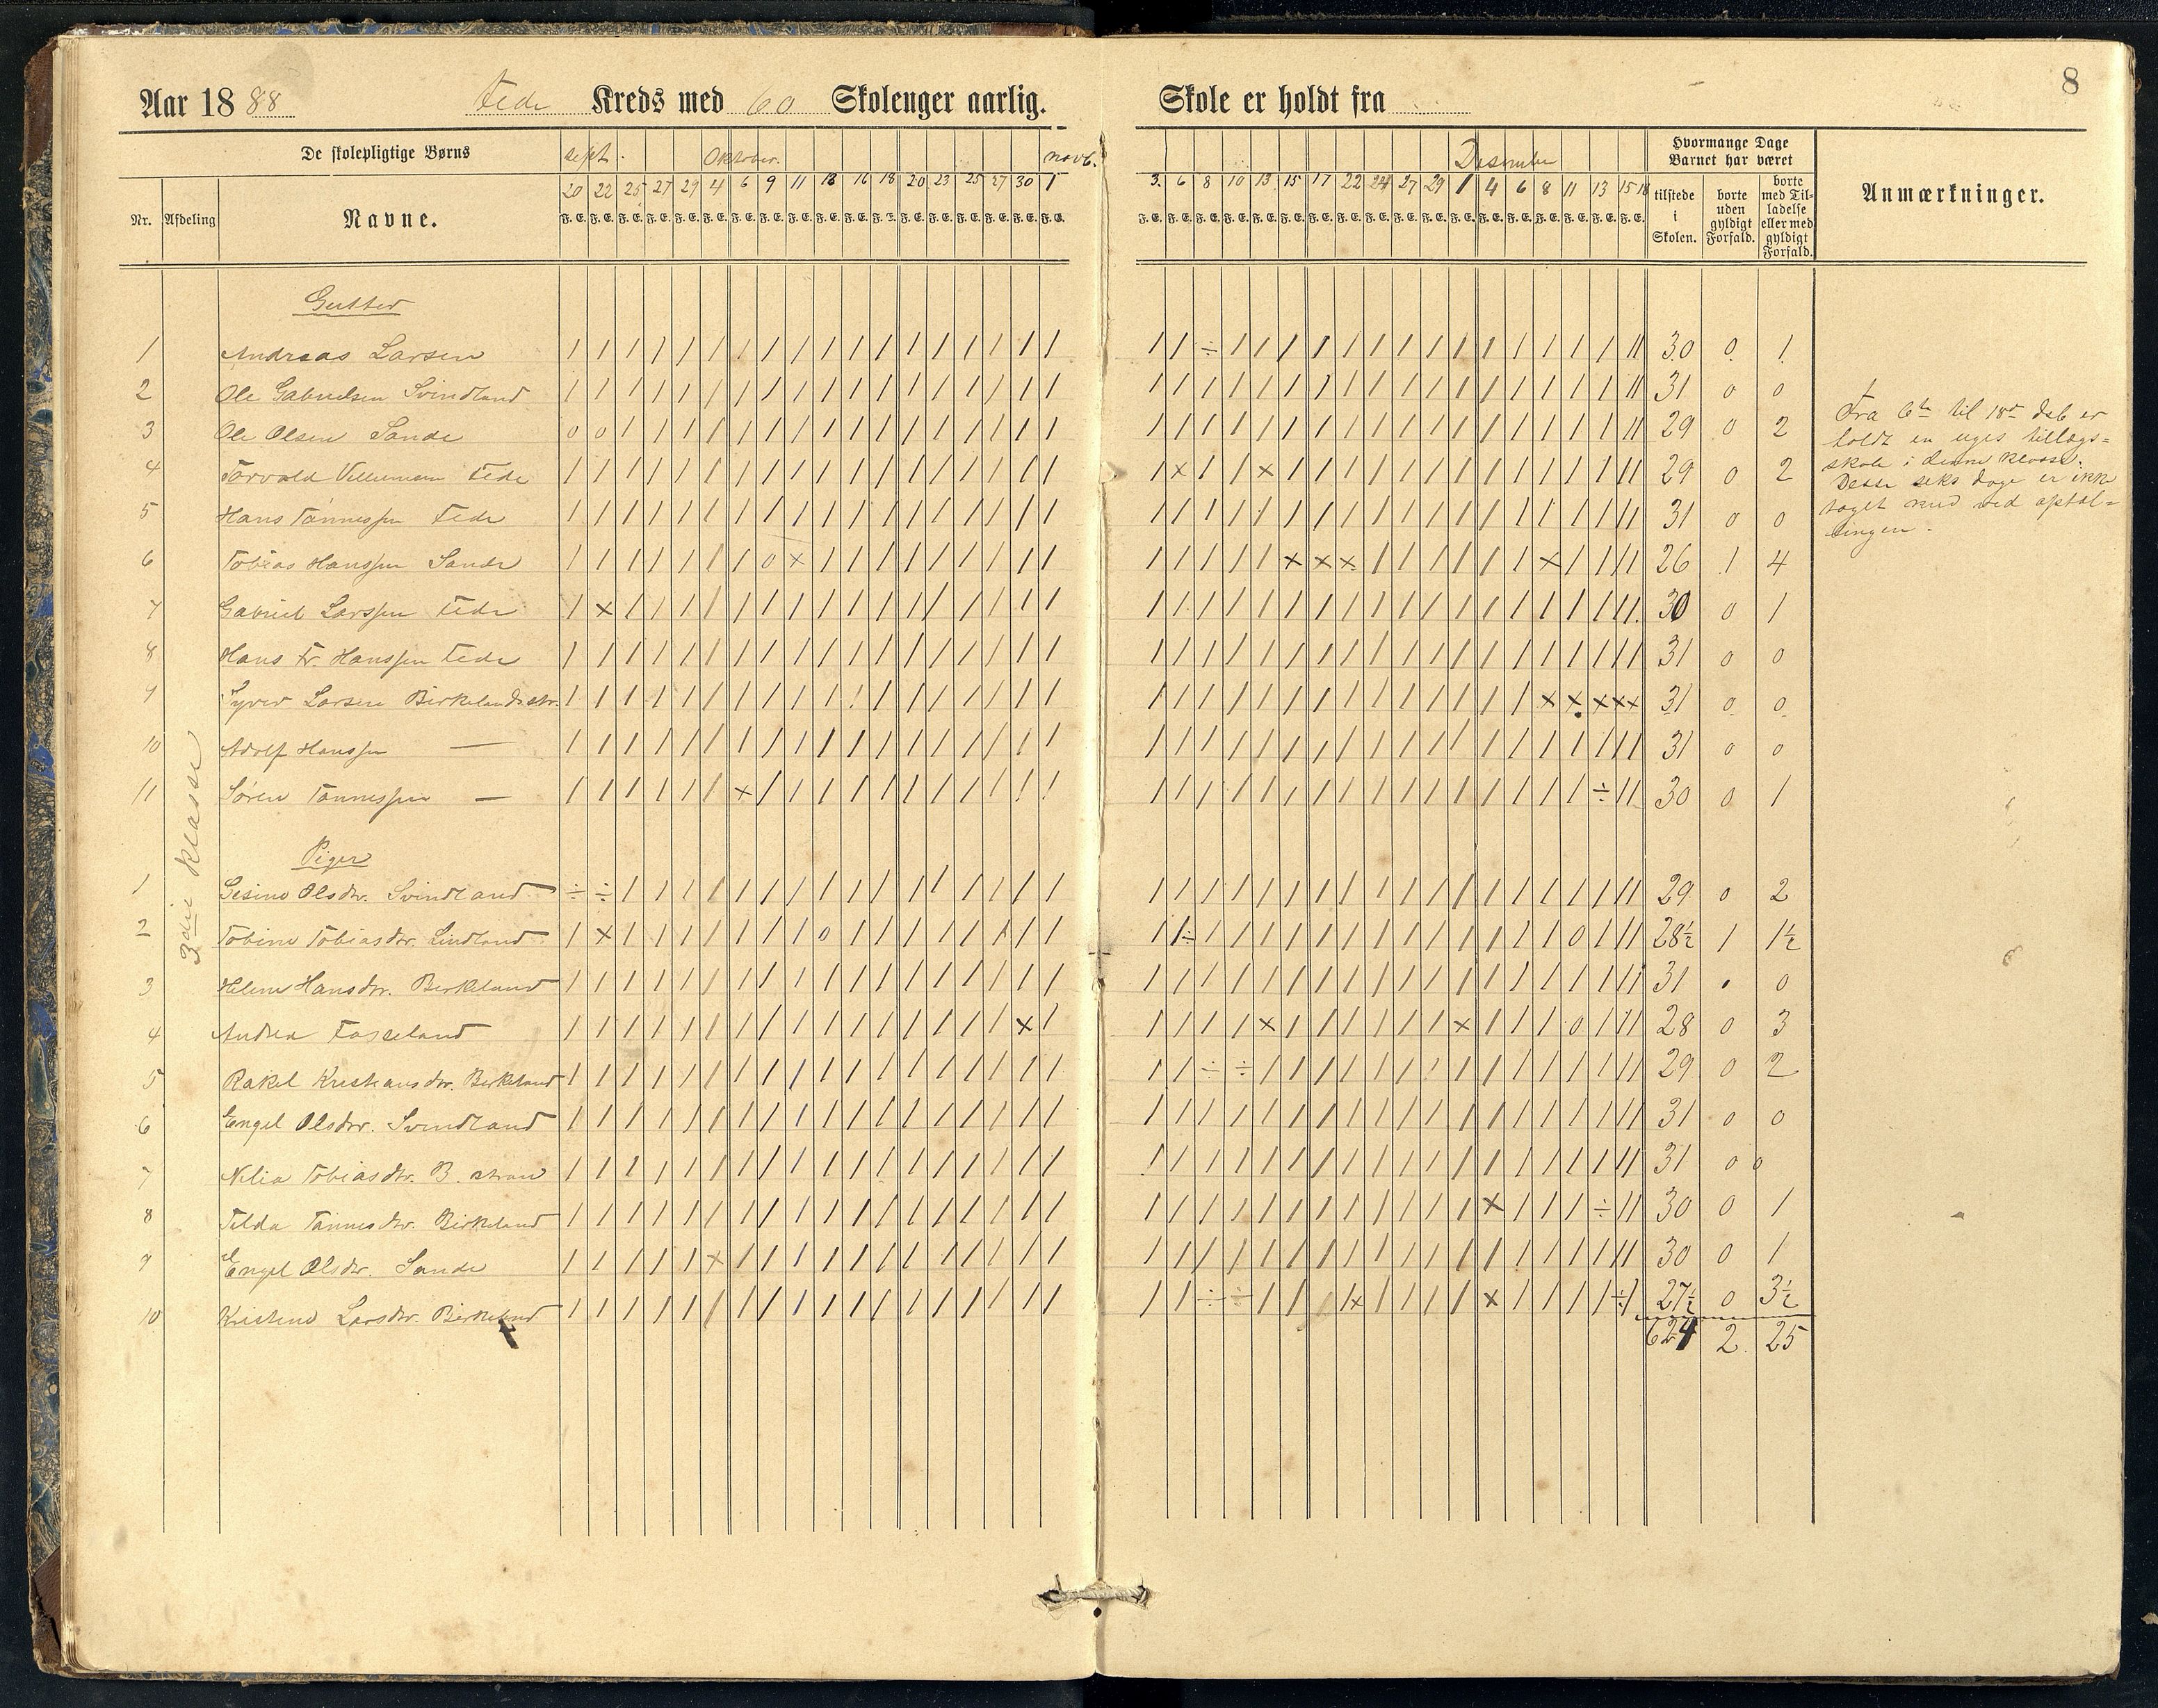 8
Aar 1888 Fede Kreds med 60 Skoleuger aarlig. Skole er holdt fra
De skolepligtige Børns sept. Oktober. novb. Desember Hvormange Dage Barnet har været Anmærkninger.
Nr. Afdeling Navne. 20 22 25 27 29 4 6 9 11 13 16 18 20 23 25 27 30 1 3. 6 8 10 13 15 17 22 24 27 29 1 4 6 8 11 13 15 18 tilstede i Skolen. borte uden gyldigt Forfald. borte med Tilladelse eller med gyldigt Forfald.
F. E. F. E. F. E. F. E. F. E. F. E. F. E. F. E. F. E. F. E. F. E. F. E. F. E. F. E. F. E. F. E. F. E. F. E. F. E. F. E. F. E. F. E. F. E. F. E. F. E. F. E. F. E. F. E. F. E. F. E. F. E. F. E. F. E. F. E. F. E. F. E.
3die Klasse
Gutter
1 Andreas Larsen 30 0 1
2 Ole Gabrielsen Svindland 31 0 0
3 Ole Olsen Sande 29 0 2
4 Torvald Villumsen Fede 29 0 2
5 Hans Tønnessen Fede 31 0 0
6 Tobias Hanssen Sande 26 1 4
7 Gabriel Larssen Fede 30 0 1
8 Hans Fr. Hanssen Fede 31 0 0
9 Syver Larsen Birkelandsstr. 31 0 0
10 Adolf Hanssen — 31 0 0
11 Søren Tønnessen — 30 0 1
Piger
1 Gesine Olsdtr. Svindland 29 0 2
2 Tobine Tobiasdtr. Lindland 28½ 1 1½
3 Helene Hansdtr. Birkeland 31 . 0
4 Andrea 28 0 3
5 Rakel Kristiansdtr. Birkeland 29 0 2
6 Engel Olsdtr. Svindland 31 0 0
7 Nelia Tobiasdtr. B. stran 31 0 0
8 Tilda Tønnesdtr. Birkeland 30 0 1
9 Engel Olsdtr. Sande 30 0 1
10 Kristine Larsdtr. Birkeland 27½ 0 3½
624 2 25
Fra 6te til 18de dsb er
holdt en uges tillægs=
skole i denne klasse.
Disse seks dage er ikke
taget med ved optæl=
lingen.